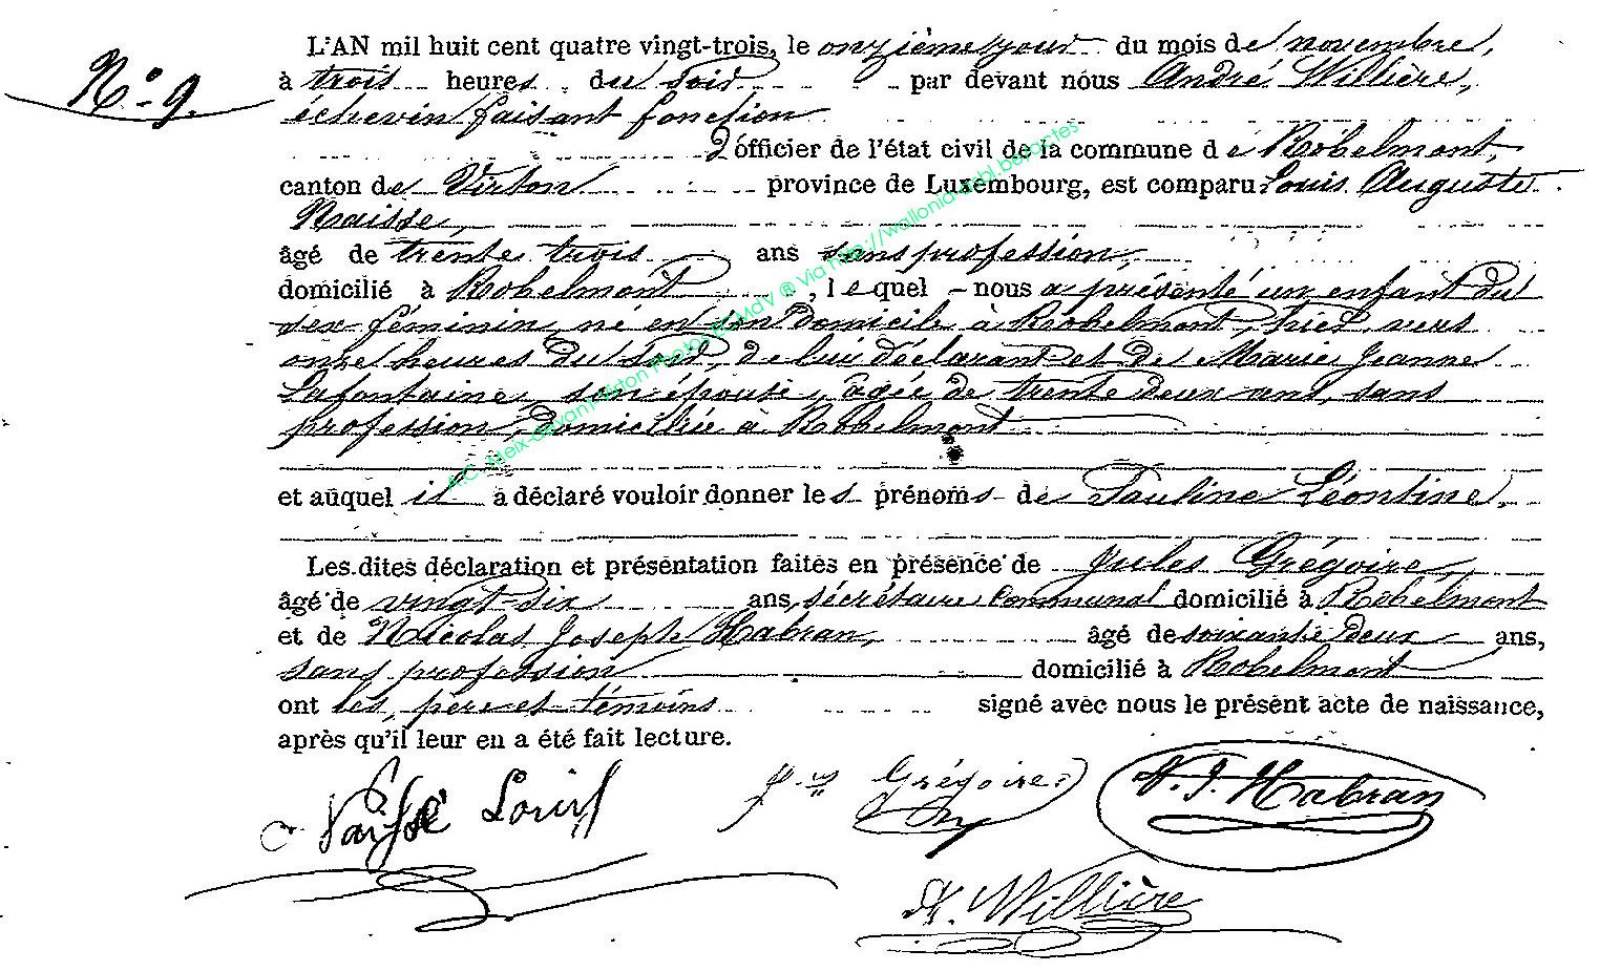 L'AN mil huit cent quatre vingt-trois, le onzième jour du mois de novembre,
N° 9. à trois heures du soir par devant nous André Willière,
échevin faisant fonction
d'officier de l'état civil de la commune de Robelmont,
canton de Virton province de Luxembourg, est comparu Louis Auguste
Naisse,
âgé de trente trois ans sans profession,
domicilié à Robelmont, lequel nous a présenté un enfant du
sex féminin, né en son domicile à Robelmont, hier vers
onze heures du soir, de lui déclarant et de Marie Jeanne
Lafontaine, son épouse, âgée de trente deux ans, sans
profession, domiciliée à Robelmont
et auquel il a déclaré vouloir donner les prénoms de Pauline Léontine,
Les dites déclaration et présentation faites en présence de Jules Grégoire,
âgé de vingt-six ans, secrétaire communal domicilié à Robelmont
et de Nicolas Joseph Habran, âgé de soixante deux ans,
sans profession domicilié à Robelmont
ont les père et témoins signé avec nous le présent acte de naissance,
après qu'il leur en a été fait lecture.
Louis Grégoire N. J. Habran
A. Willière
A.C. Meix-devant-Virton Photos ECMdV ® Via http://wallonia-asbl.be/mactes